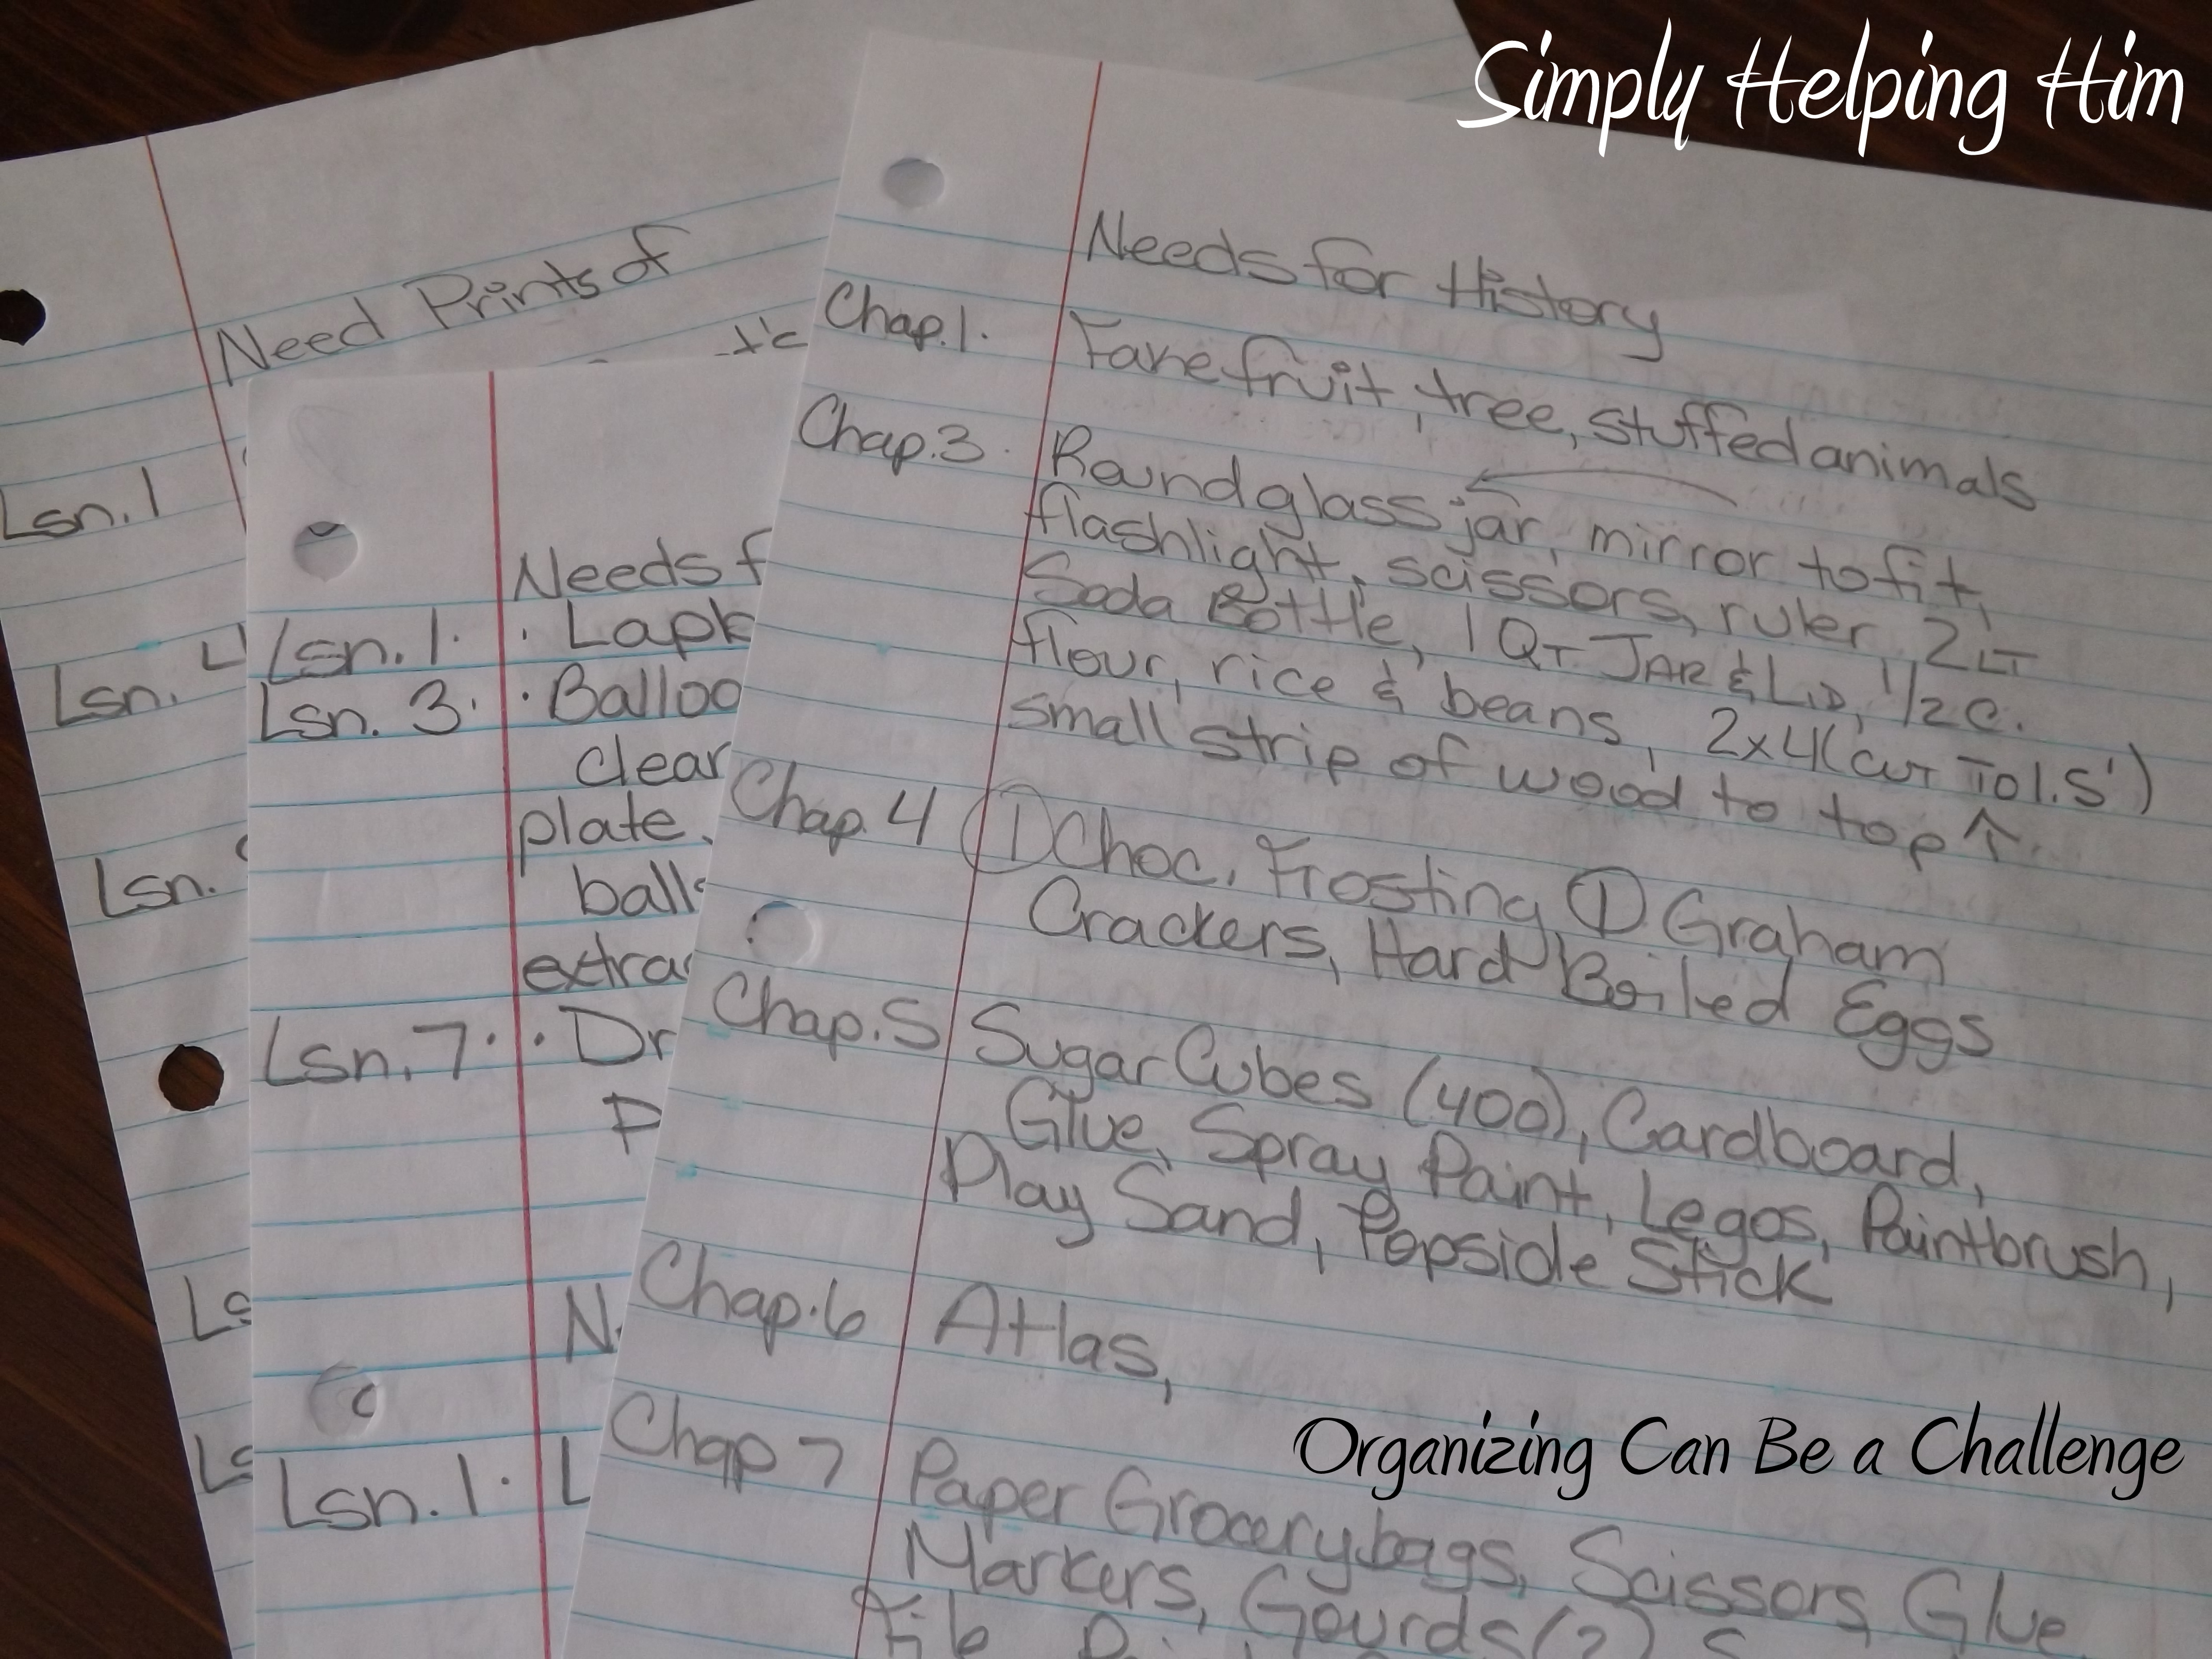 Simply Helping Him
Need Prints of
Lsn. 1
Lsn. 4
Lsn.
Needs f
Lsn. 1. . Lapb
Lsn. 3. . Balloo
clear
plate.
balls
extra
Lsn. 7. . Dr
P
N
Lsn. 1. L
Needs for History
Chap. 1. Fake fruit, tree, stuffed animals
Chap. 3. Round glass jar, mirror to fit,
flashlight, scissors, ruler, 2 LT
Soda Bottle, 1 QT JAR & LID, 1/2 c.
flour, rice & beans, 2x4 (CUT TO 1.5')
small strip of wood to top ↑.
Chap. 4 ① Choc. Frosting ① Graham
Crackers, Hard Boiled Eggs
Chap. 5 Sugar Cubes (400), Cardboard,
Glue, Spray Paint, Legos, Paintbrush,
Play Sand, Popsicle Stick
Chap. 6 Atlas,
Chap 7 Paper Grocery bags, Scissors, Glue
Markers, Gourds (2)
Organizing Can Be a Challenge